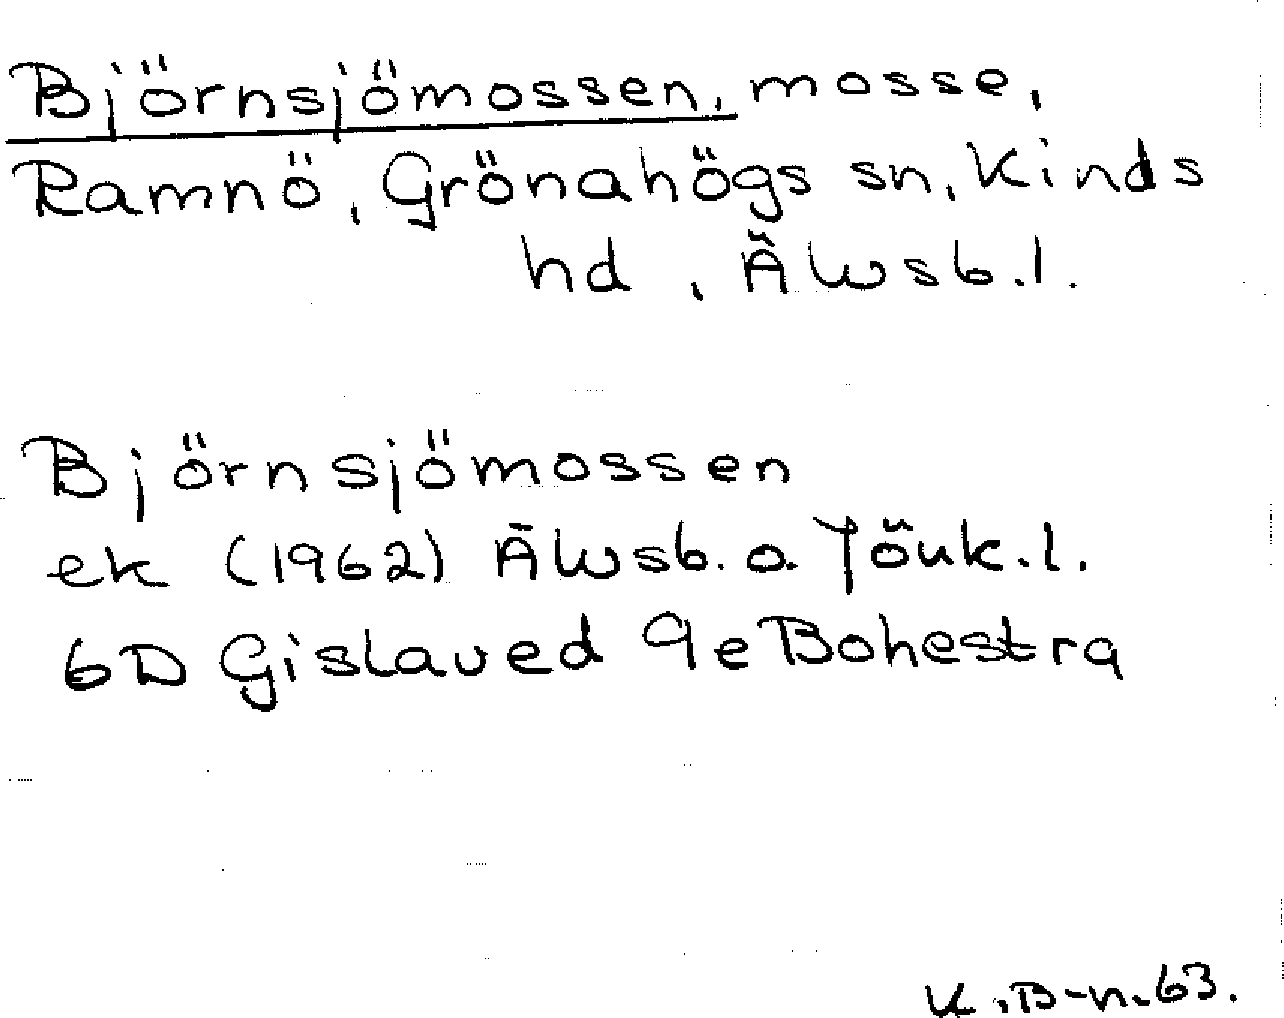 Björnsjömossen, mosse,
Ramnö, Grönahögs sn, Kinds
hd, Älvsb.l.
Björnsjömossen
ek (1962) Älvsb. o. Jönk.l.
6D Gislaved 9e Bohestra
K.B-n.63.